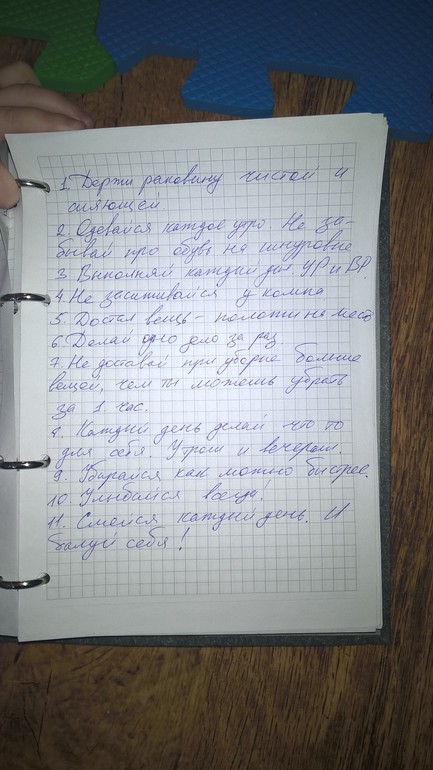 1. Держи раковину чистой и
сияющей
2. Одевайся каждое утро. Не за-
бывай про обувь на шнуровке
3. Выполняй каждый day УР и ВР.
4. Не засиживайся у компа
5. Достал вещь - положи на место
6. Делай одно дело за раз.
7. Не доставай при уборке больше
вещей, чем ты можешь убрать
за 1 час.
8. Каждый день делай что то
для себя. Утром и вечером.
9. Убирайся как можно быстрее.
10. Улыбайся всегда!
11. Смейся каждый день. И
балуй себя!